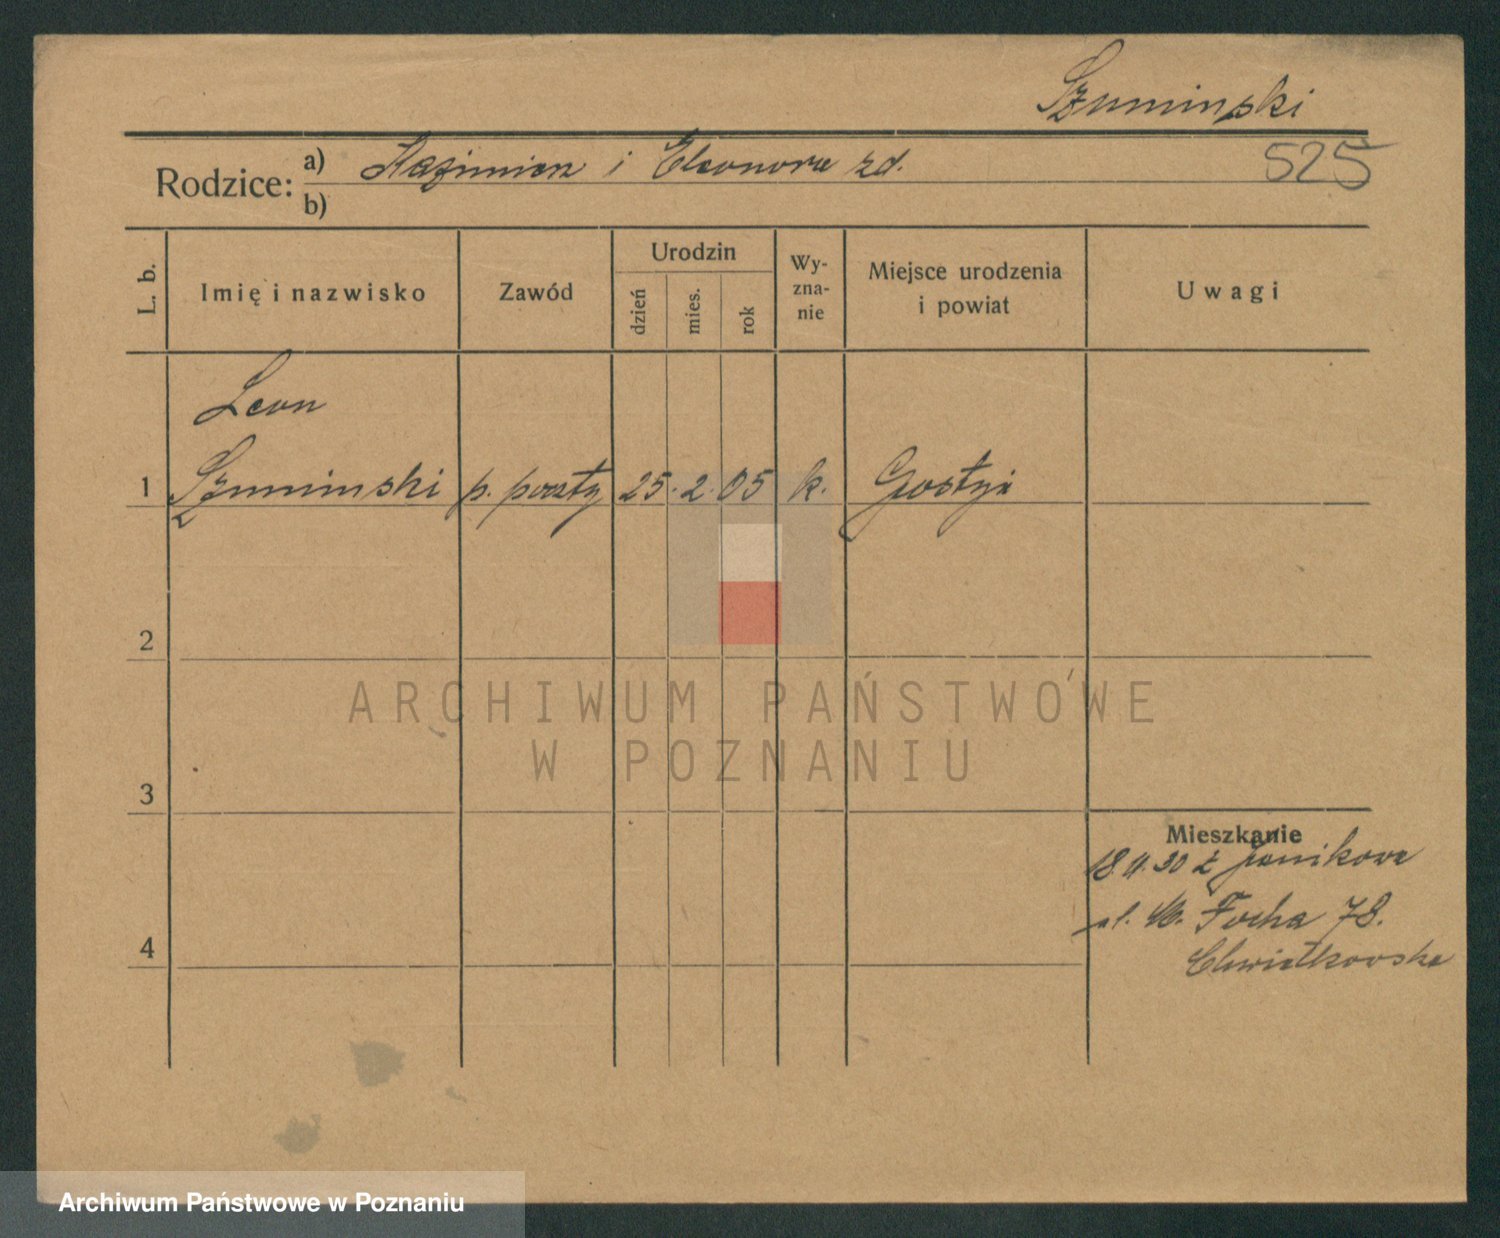 Szuminski
525
Rodzice: a) Kazimierz i Eleonora zd.
b)
L. b.
Imię i nazwisko
Zawód
Urodzin
dzień
mies.
rok
Wy-
zna-
nie
Miejsce urodzenia
i powiat
Uwagi
Leon
1 Szuminski p. poczty 25. 2. 05 k. Gostyń
2
ARCHIWUM PAŃSTWOWE
W POZNANIU
3
Mieszkanie
18.11.30 z Janikowa
ul. M. Focha 78.
4
Chwiałkowska
Archiwum Państwowe w Poznaniu